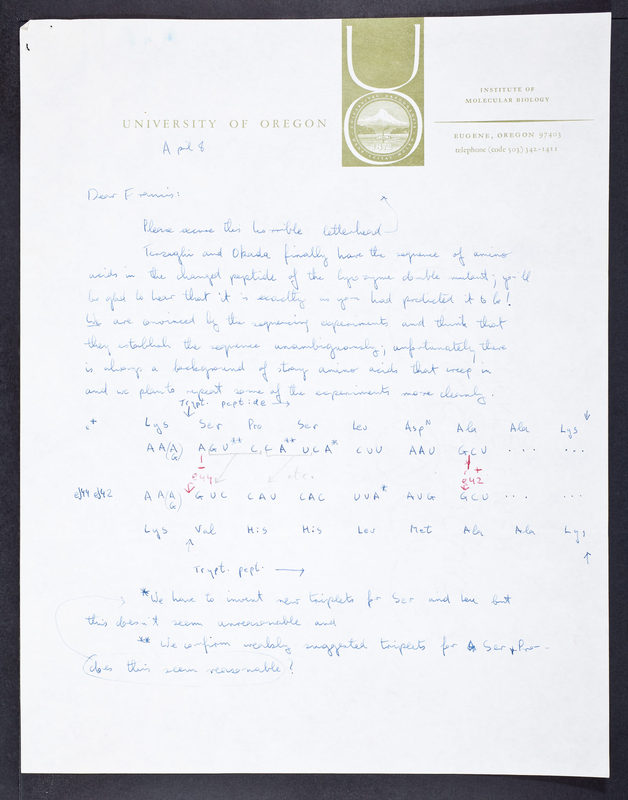 UNIVERSITY OF OREGON
INSTITUTE OF
MOLECULAR BIOLOGY
EUGENE, OREGON 97403
telephone (code 503) 342-1411
April 8
Dear Francis:
Please excuse this horrible letterhead
Terzaghi and Okada finally have the sequence of amino
acids in the changed peptide of the lysozyme double mutant; you'll
be glad to hear that it is exactly as you had predicted it to be!
We are convinced by the sequencing experiments and think that
they establish the sequence unambiguously; unfortunately, there
is always a background of stray amino acids that creep in
and we plan to repeat some of the experiments more cleanly.
Trypt. peptide →
e+ Lys Ser Pro Ser Leu Asp N Ala Ala Lys
A A (A/G) A G U** C C A** U C A* C U U A A U G C U ... ...
− eJ44 etc. + eJ42
eJ44 eJ42 A A (A/G) G U C C A U C A C U U A* A U G G C U ... ...
Lys Val His His Leu Met Ala Ala Lys
Trypt. pept. →
*We have to invent new triplets for Ser and Leu but
this doesn't seem unreasonable and
** We confirm weakly suggested triplets for Ser + Pro.
does this seem reasonable?